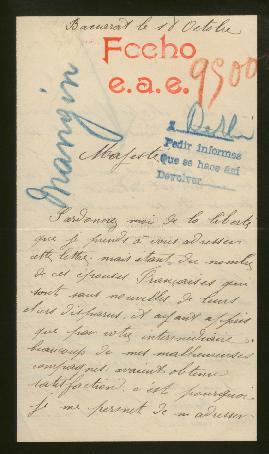 Baccarat le 18 Octobre
Fecho
e.a.e.
9500
Mangin
A Dalli
Pedir informes
Que se hace así
Devolver
Majesté
Pardonnez moi de la liberté
que je prends à vous adresser
cette lettre. mais étant du nombre
de ces épouses Françaises qui
sont sans nouvelles de leurs
chers disparus, et ayant appris
que par votre intermédiaire
beaucoup de mes malheureuses
compagnes avaient obtenu
satisfaction, c'est pourquoi
je me permet de m'adresser